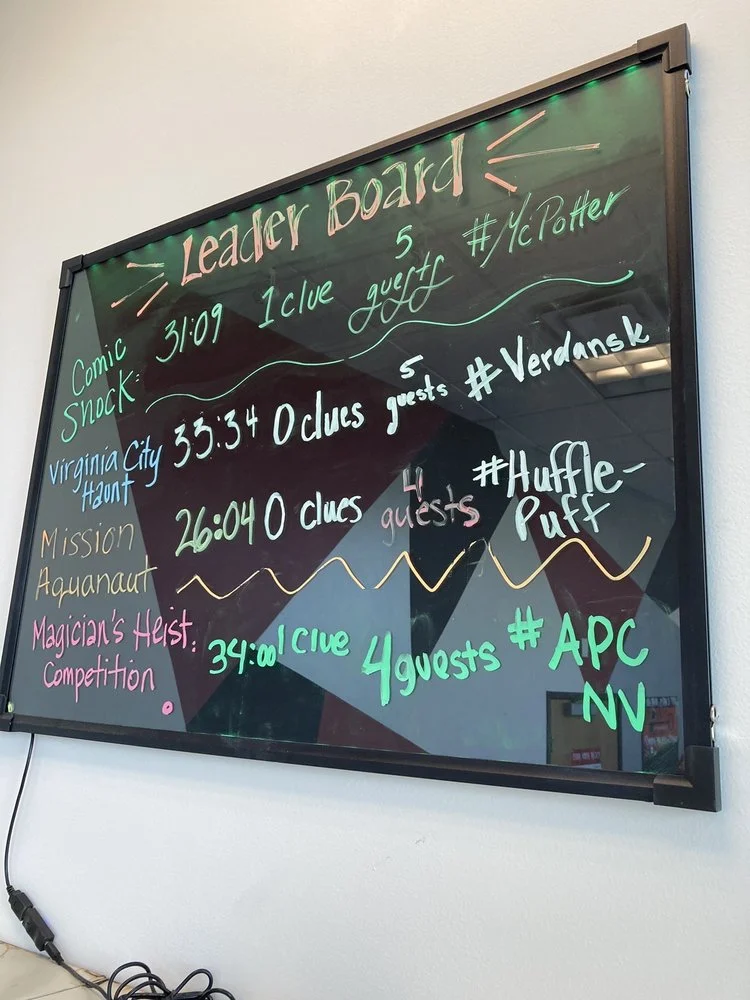 Leader Board
Comic Shock: 31:09 1 clue 5 guests #McPotter
Virginia City Haunt 33:34 0 clues 5 guests #Verdansk
Mission Aquanaut 26:04 0 clues 4 guests #Huffle-Puff
Magician's Heist: Competition 34:00 1 clue 4 guests #APC NV